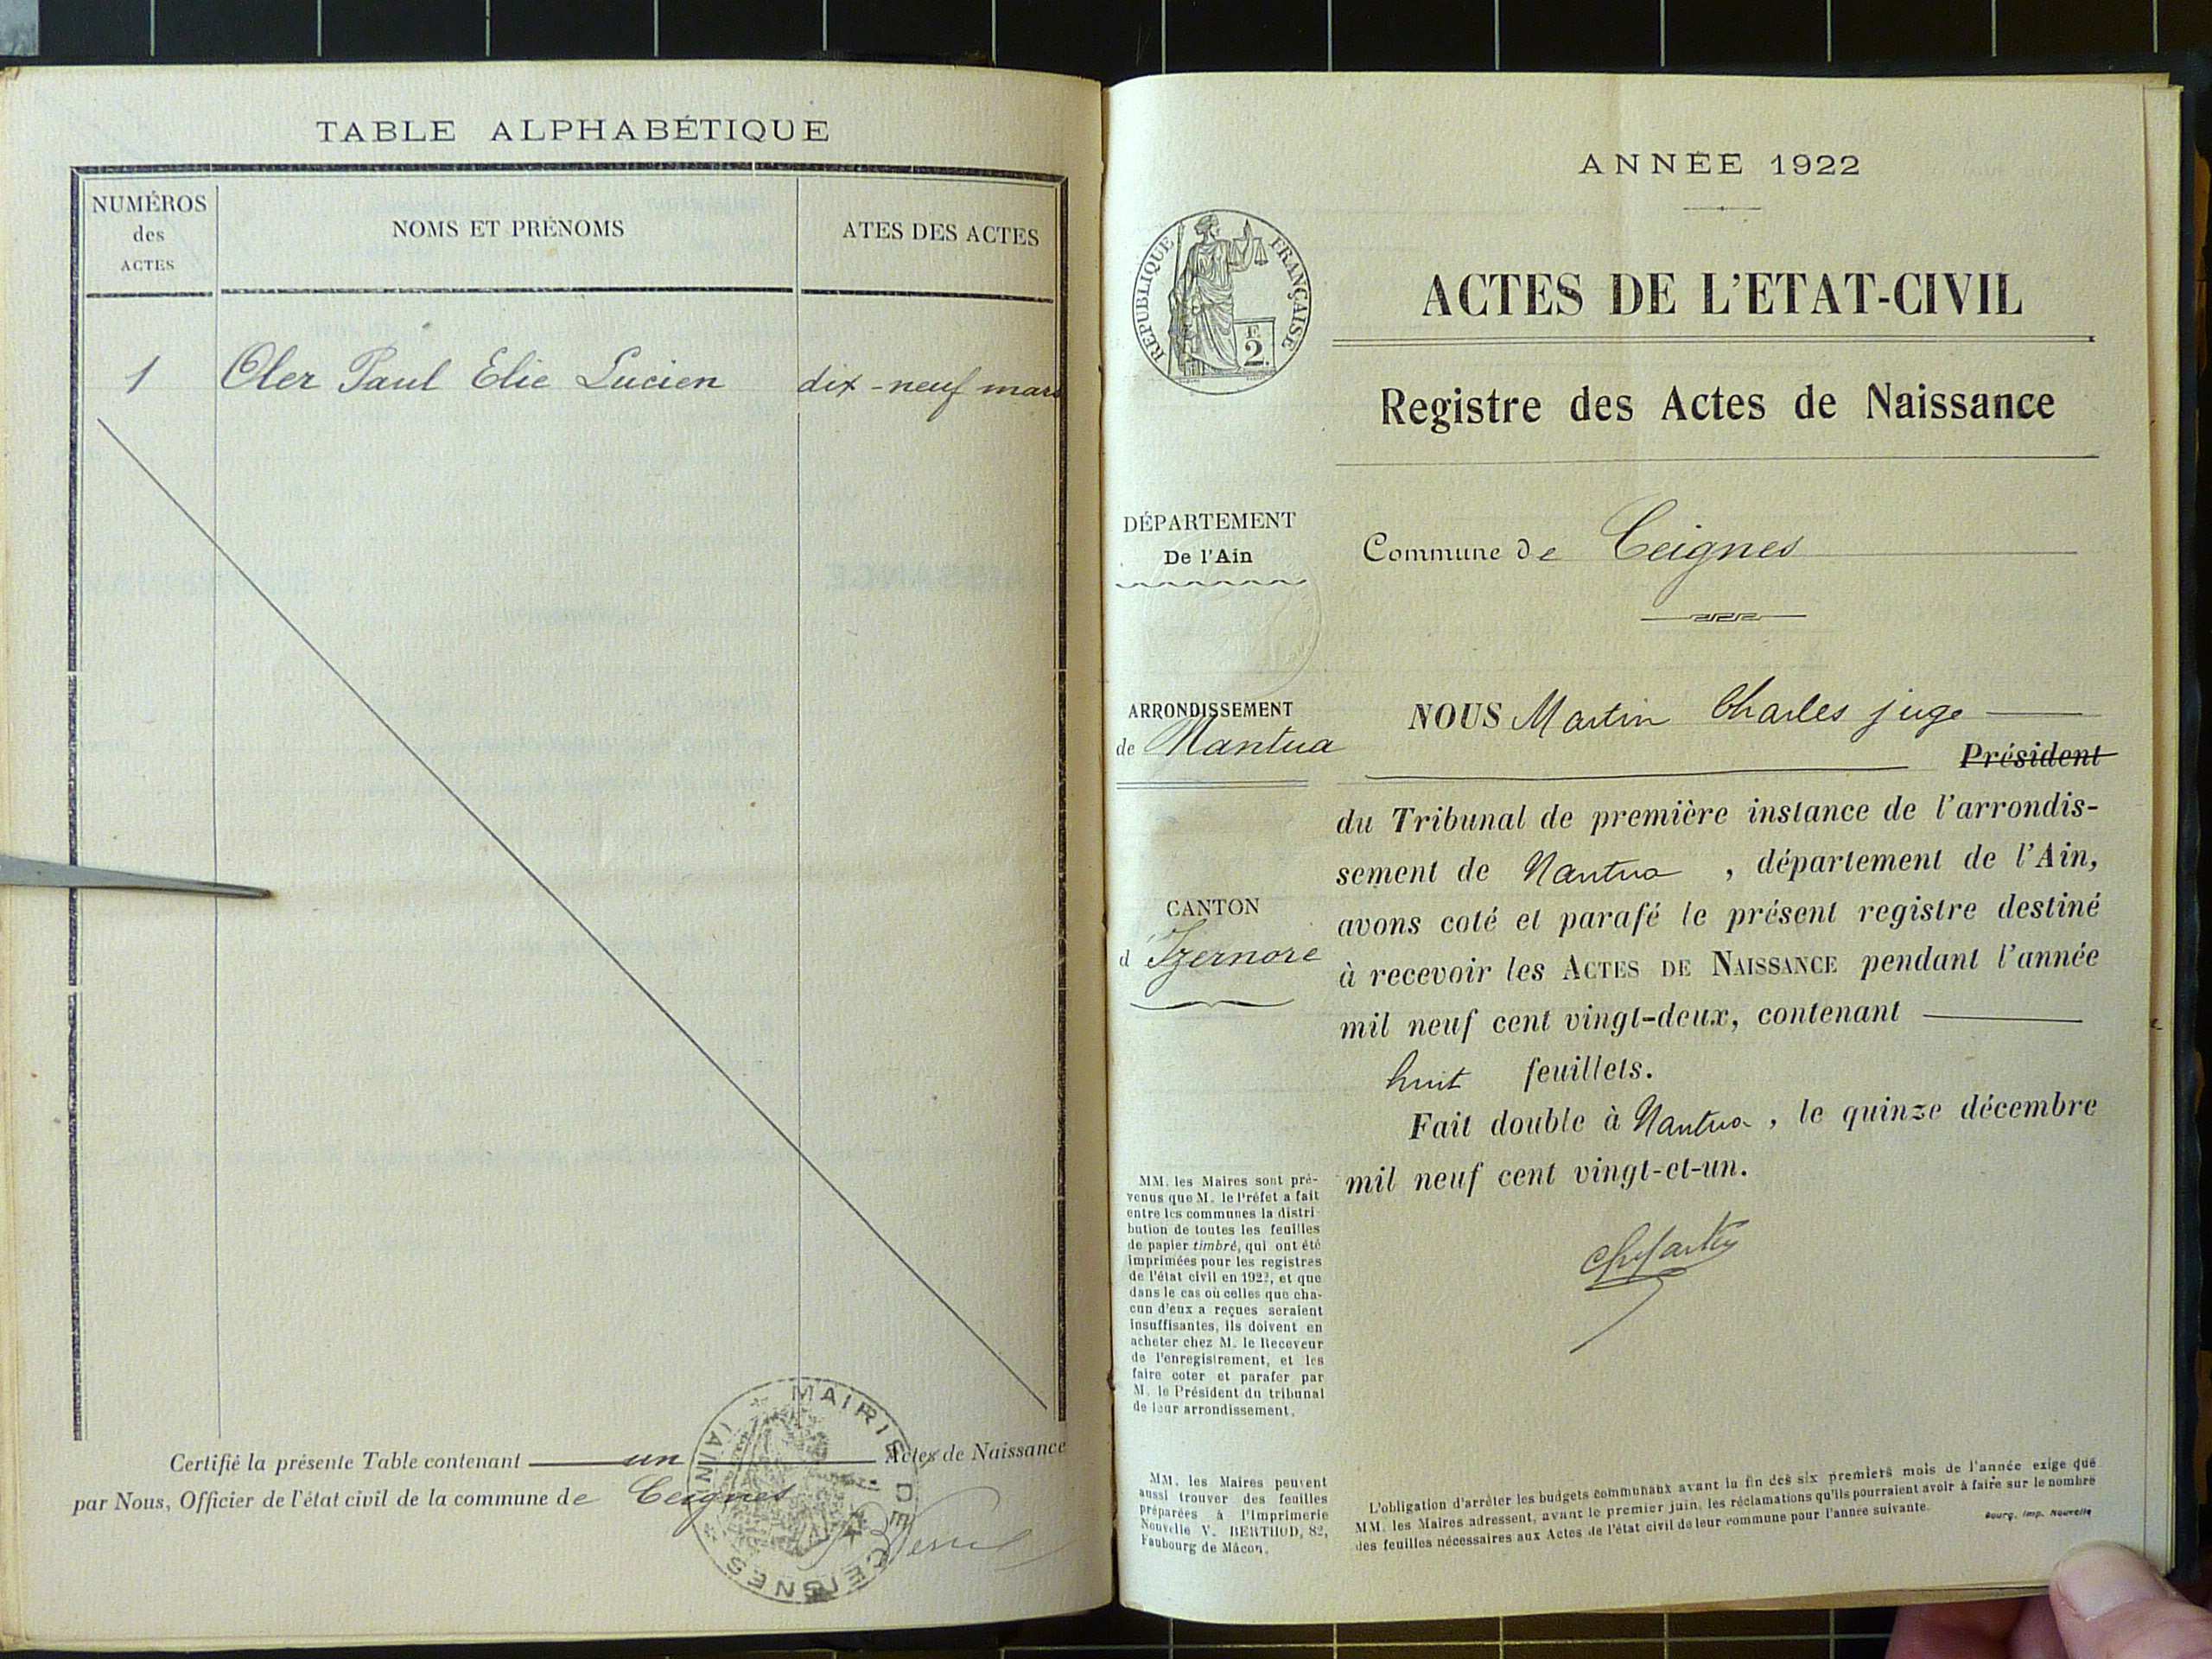 TABLE ALPHABÉTIQUE
NUMÉROS
des
ACTES
NOMS ET PRÉNOMS
ATES DES ACTES
1 Oler Paul Elie Lucien dix-neuf mars
Certifié la présente Table contenant un Actes de Naissance
par Nous, Officier de l'état civil de la commune de Ceignes
MAIRIE DE CEIGNES
(AIN)
ANNÉE 1922
REPUBLIQUE FRANÇAISE
F.
2.
ACTES DE L'ETAT-CIVIL
Registre des Actes de Naissance
DÉPARTEMENT
De l'Ain
Commune de Ceignes
ARRONDISSEMENT
de Nantua
CANTON
d'Izernore
NOUS Martin Charles juge
Président
du Tribunal de première instance de l'arrondis-
sement de Nantua, département de l'Ain,
avons coté et parafé le présent registre destiné
à recevoir les ACTES DE NAISSANCE pendant l'année
mil neuf cent vingt-deux, contenant
huit feuillets.
Fait double à Nantua, le quinze décembre
mil neuf cent vingt-et-un.
ChMartin
MM. les Maires sont pré-
venus que M. le Préfet a fait
entre les communes la distri-
bution de toutes les feuilles
de papier timbré, qui ont été
imprimées pour les registres
de l'état civil en 1922, et que
dans le cas où celles que cha-
cun d'eux a reçues seraient
insuffisantes, ils doivent en
acheter chez M. le Receveur
de l'enregistrement, et les
faire coter et parafer par
M. le Président du tribunal
de leur arrondissement.
MM. les Maires peuvent
aussi trouver des feuilles
préparées à l'Imprimerie
Nouvelle V. BERTHOD, 82,
Faubourg de Mâcon.
L'obligation d'arrêter les budgets communaux avant la fin des six premiers mois de l'année exige que
MM. les Maires adressent, avant le premier juin, les réclamations qu'ils pourraient avoir à faire sur le nombre
des feuilles nécessaires aux Actes de l'état civil de leur commune pour l'année suivante.
Bourg, Imp. Nouvelle